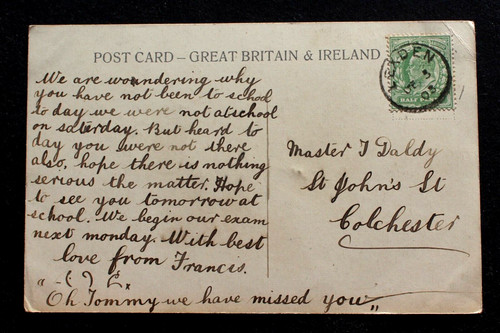 POST CARD – GREAT BRITAIN & IRELAND
We are woundering why
you have not been to school
to day we were not at school
on saterday. But heard to
day you were not there
also, hope there is nothing
serious the matter. Hope
to see you tomorrow at
school. We begin our exam
next monday. With best
love from Francis.
"Oh Tommy we have missed you„
Master T Daldy
St John's St
Colchester
HALF PENNY